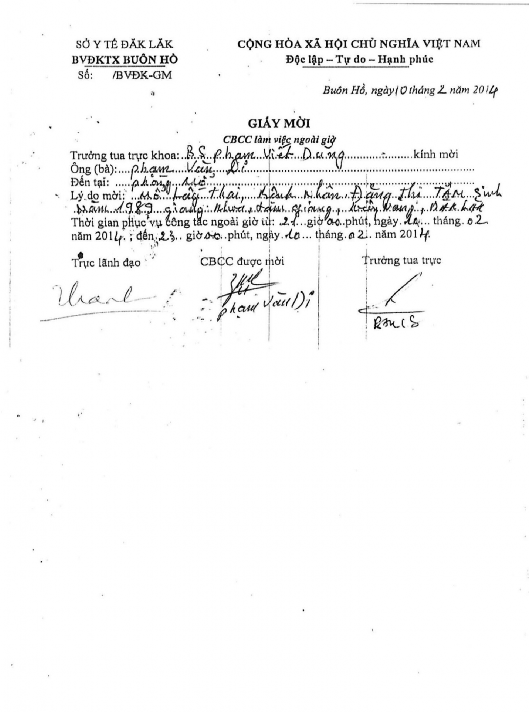 SỞ Y TẾ ĐĂK LĂK
BVĐKTX BUÔN HỒ
Số: /BVĐK-GM
CỘNG HÒA XÃ HỘI CHỦ NGHĨA VIỆT NAM
Độc lập – Tự do – Hạnh phúc
Buôn Hồ, ngày 10 tháng 2 năm 2014
GIẤY MỜI
CBCC làm việc ngoài giờ
Trưởng tua trực khoa: B.S. Phạm Viết Dung kính mời
Ông (bà): Phạm Văn Dị
Đến tại: phòng mổ
Lý do mời: Mổ lấy thai, bệnh nhân, Đặng Thị Tâm Sinh
năm 1989 giang, Đăk Lăk
Thời gian phục vụ công tác ngoài giờ từ: 21 giờ 00 phút, ngày 10 tháng 02
năm 2014; đến 23 giờ 00 phút, ngày 10 tháng 02 năm 2014
Trực lãnh đạo CBCC được mời Trưởng tua trực
Phạm Văn Dị